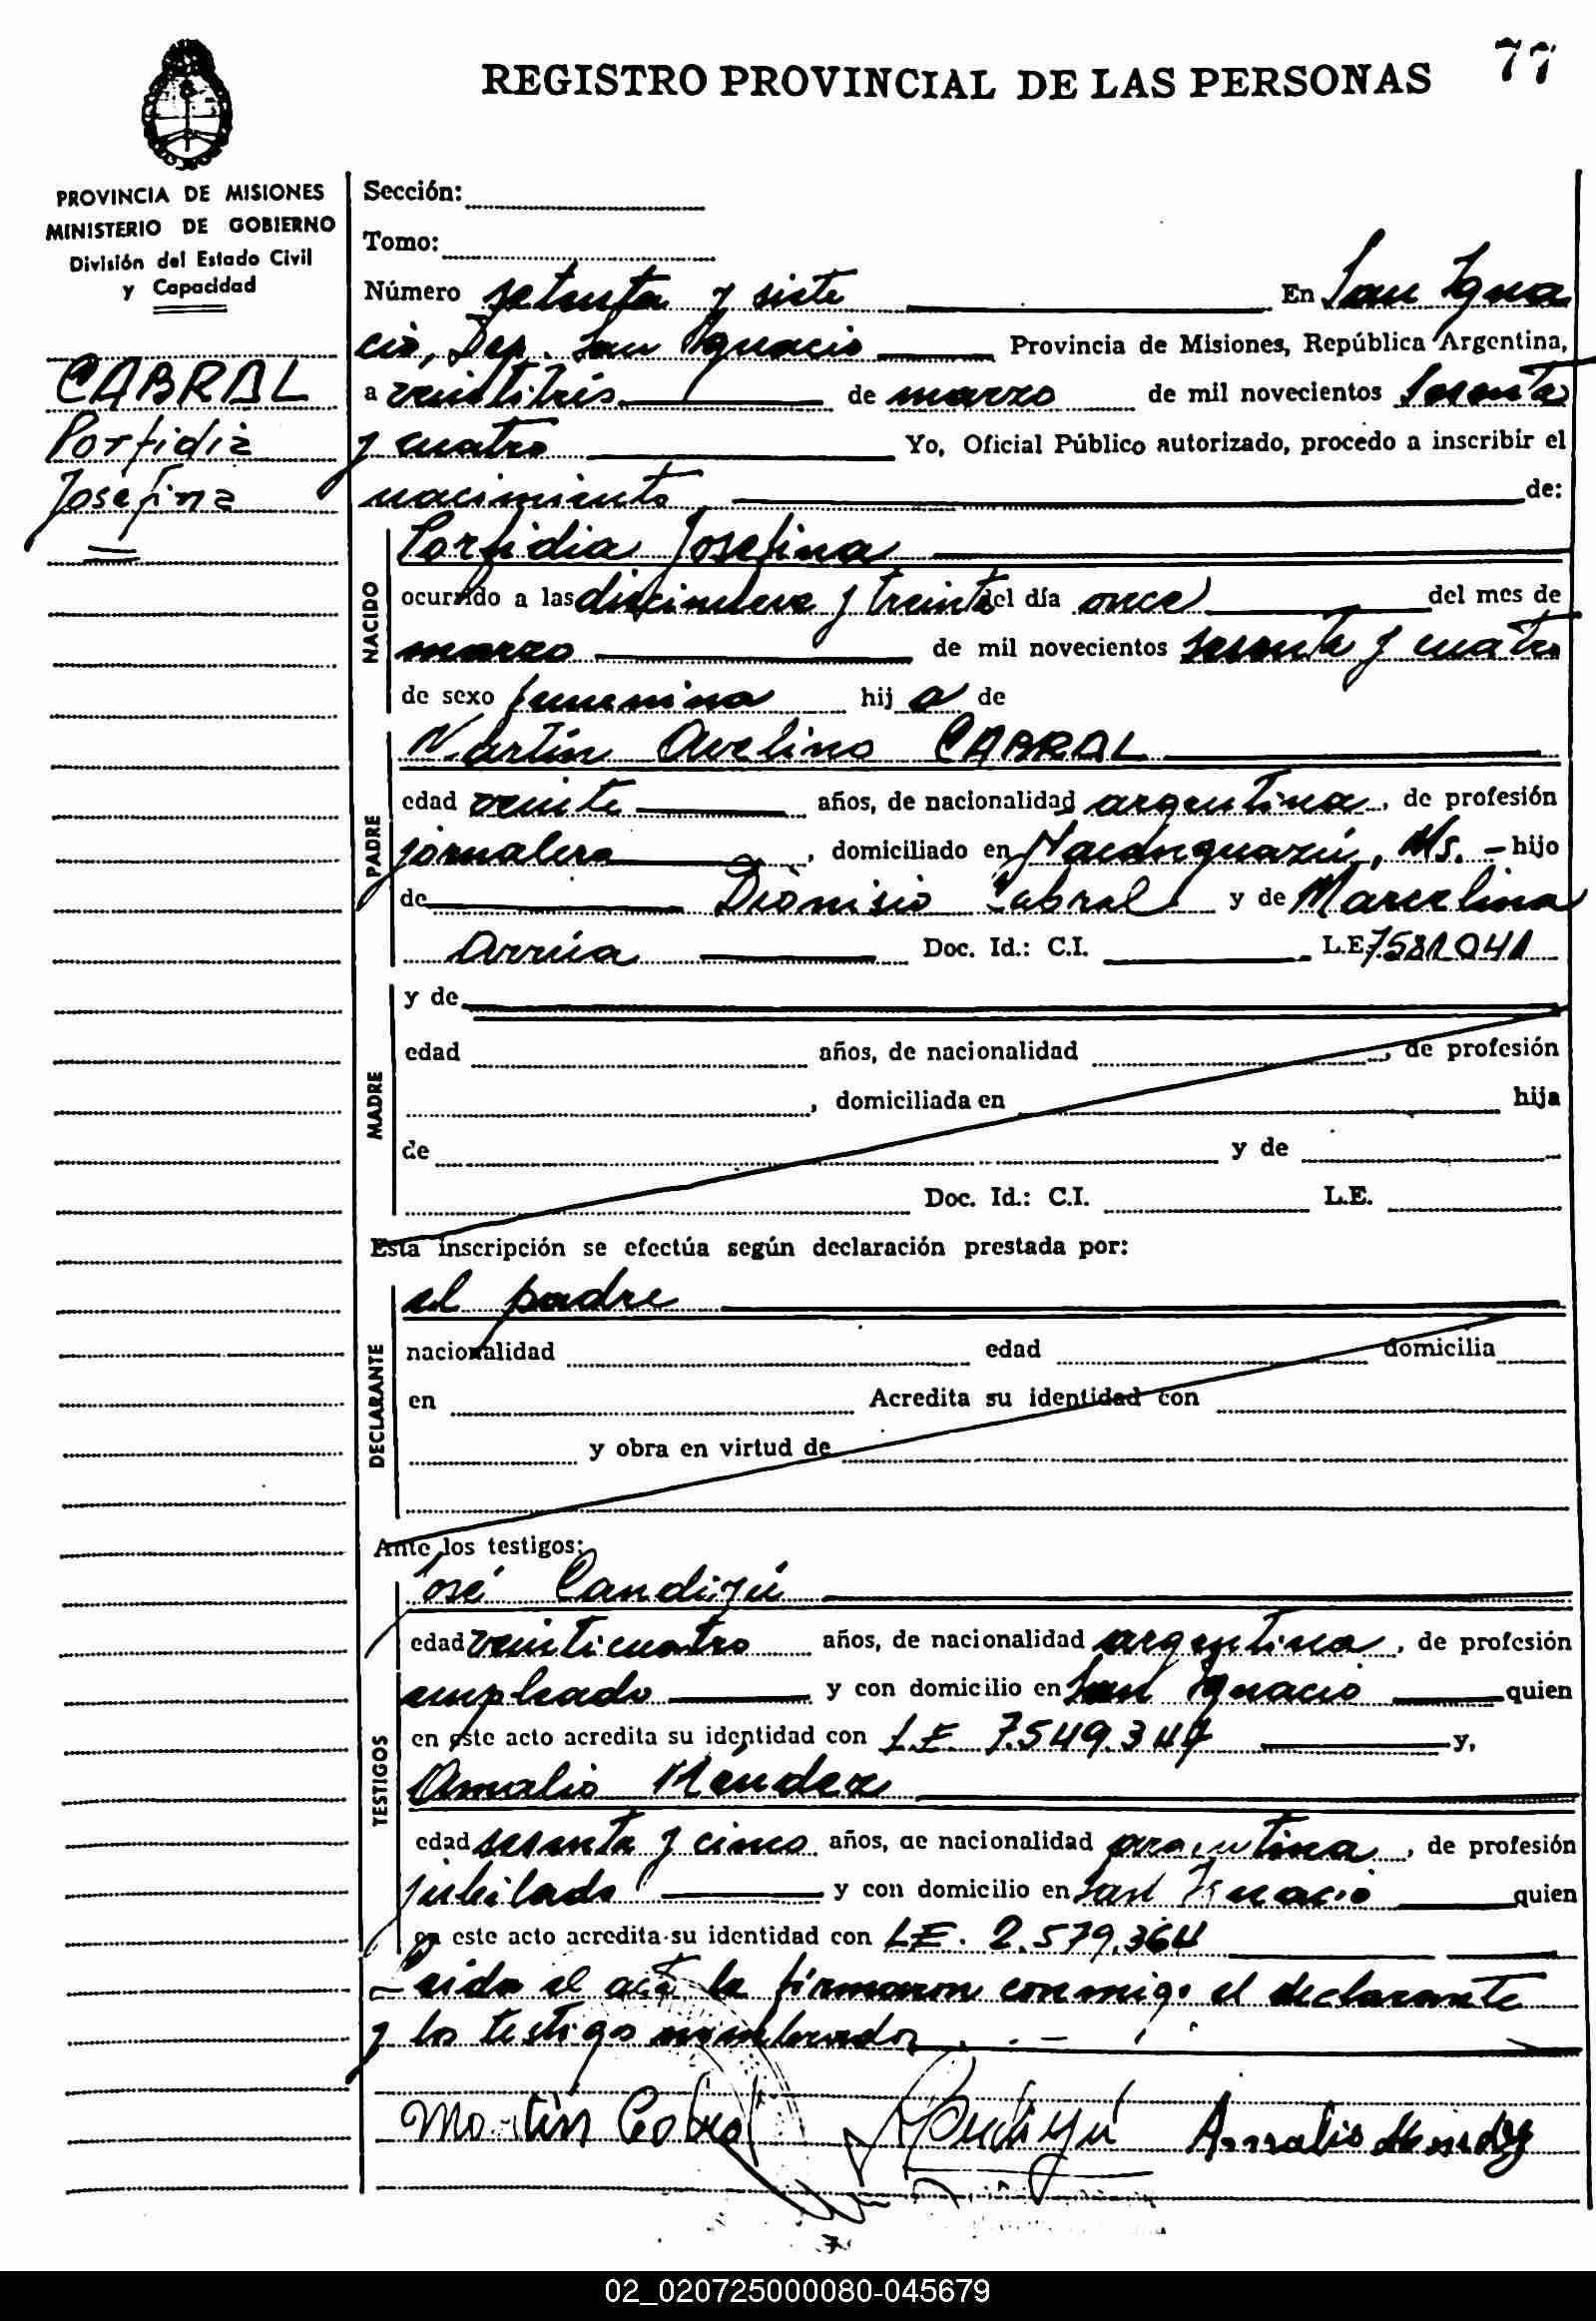 77
REGISTRO PROVINCIAL DE LAS PERSONAS
PROVINCIA DE MISIONES
MINISTERIO DE GOBIERNO
División del Estado Civil
y Capacidad
CABRAL
Porfidia
Josefina
Sección:
Tomo:
Número setenta y siete En San Igna
cio, Dep. San Ignacio Provincia de Misiones, República Argentina,
a veintitrés de marzo de mil novecientos sesenta
y cuatro Yo, Oficial Público autorizado, procedo a inscribir el
nacimiento de:
NACIDO
Porfidia Josefina
ocurrido a las diecinueve y treinta del día once del mes de
marzo de mil novecientos sesenta y cuatro
de sexo femenino hij a de
PADRE
Martín Avelino CABRAL
edad veinte años, de nacionalidad argentina, de profesión
jornalero, domiciliado en Ñacanguazú, Ms. - hijo
de Dionisio Cabral y de Marcelina
Arrúa Doc. Id.: C.I. L.E. 7581041
MADRE
y de
edad años, de nacionalidad, de profesión
, domiciliada en hija
de y de
Doc. Id.: C.I. L.E.
Esta inscripción se efectúa según declaración prestada por:
DECLARANTE
el padre
nacionalidad edad domicilia
en Acredita su identidad con
y obra en virtud de
Ante los testigos:
TESTIGOS
José Candiyú
edad veinticuatro años, de nacionalidad argentina, de profesión
empleado y con domicilio en San Ignacio quien
en este acto acredita su identidad con L.E. 7.549.347 y,
Amalio Mendez
edad sesenta y cinco años, de nacionalidad argentina, de profesión
jubilado y con domicilio en San Ignacio quien
en este acto acredita su identidad con LE. 2.579.364
Leida el acta la firmaron conmigo el declarante
y los testigo nombrados. . -
Martin Cabral Candiyú Amalio Mendez
02_020725000080-045679